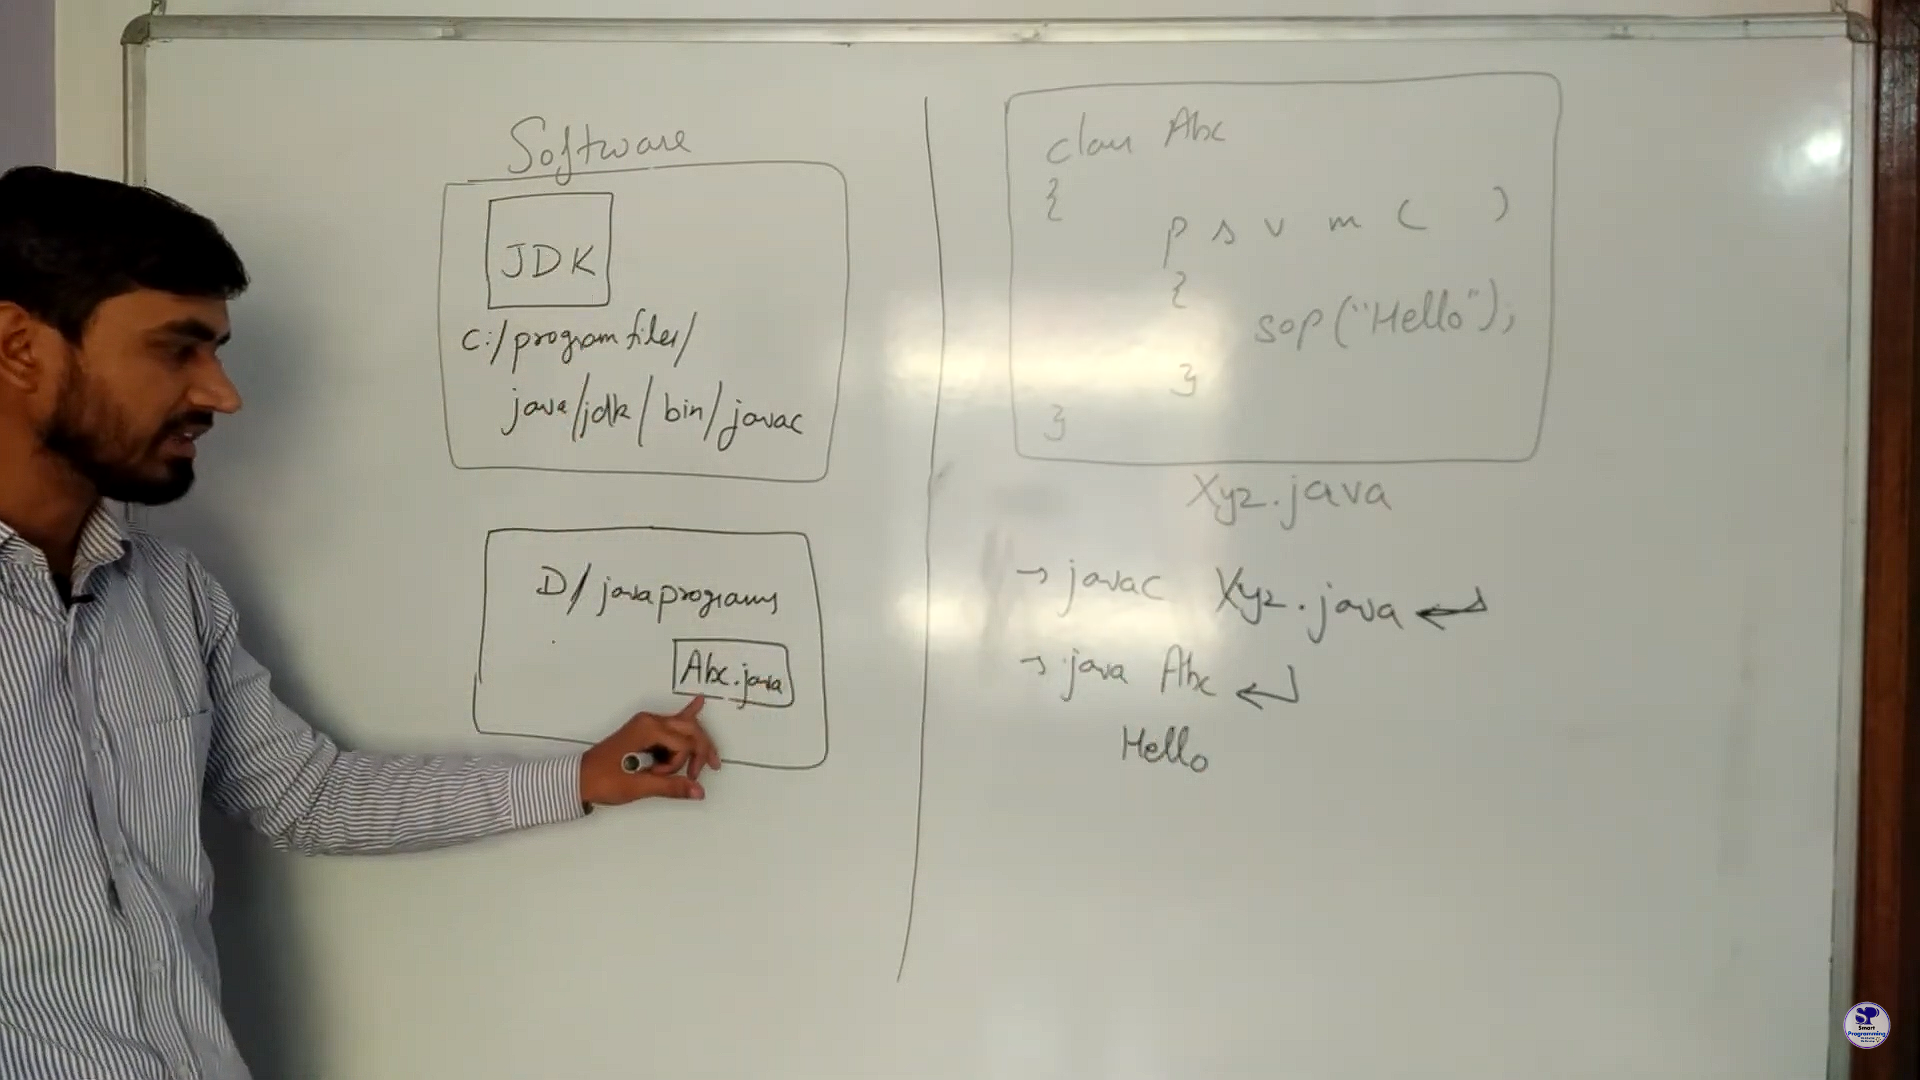 Software
JDK
C:/program files/
java/jdk/bin/javac
D/javaprograms
Abc.java
class Abc
{
p s v m ( )
{
sop("Hello");
}
}
Xyz.java
→ javac Xyz.java
→ java Abc
Hello
SP
Smart
Programming